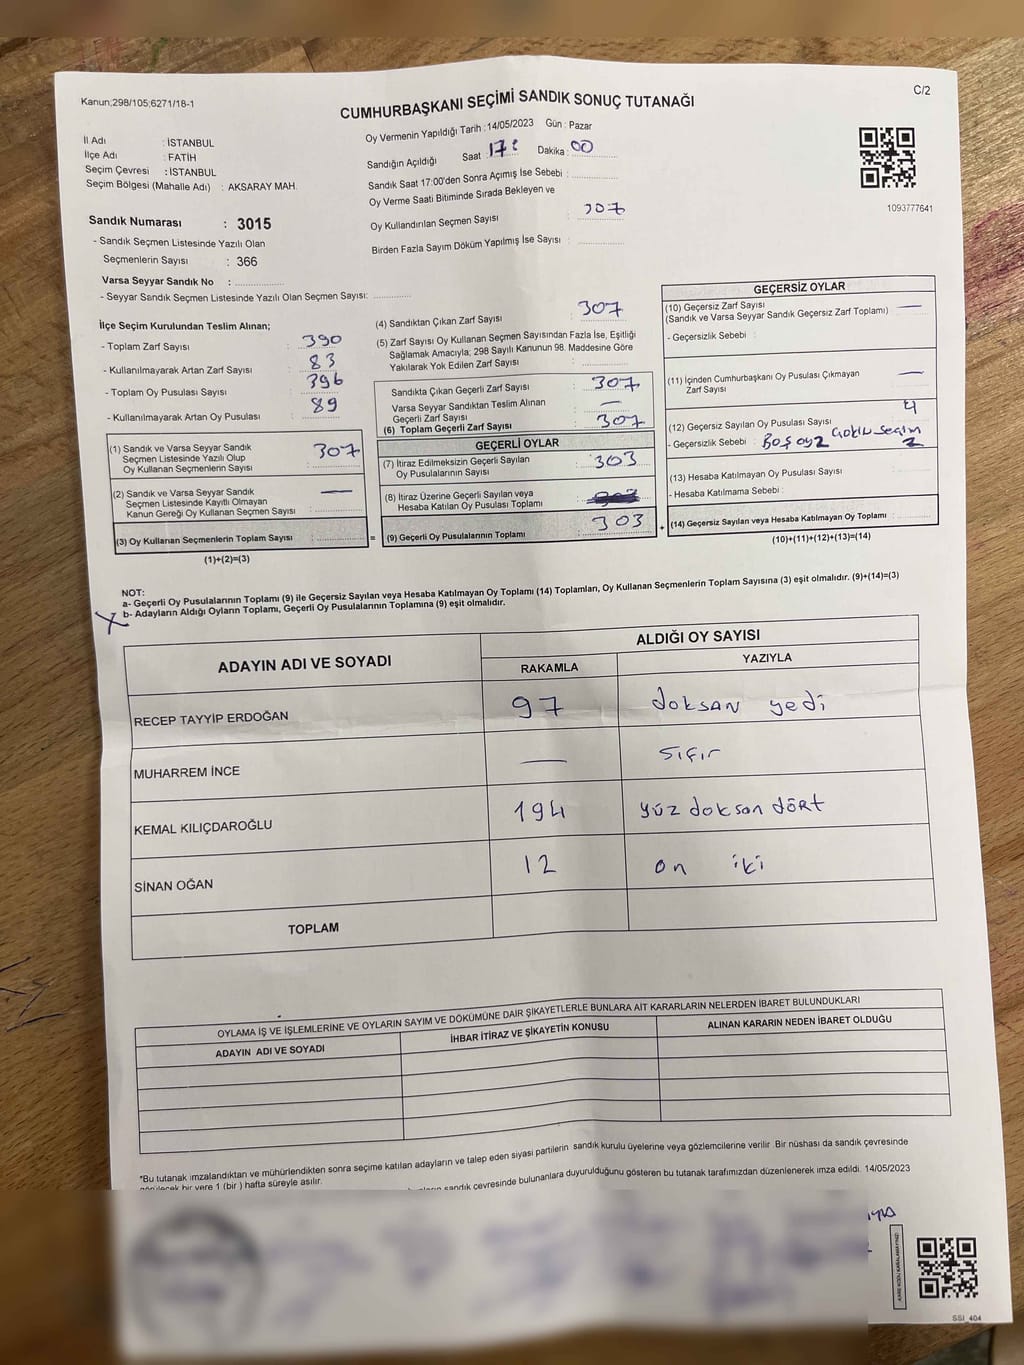 Kanun;298/105;6271/18-1
C/2
CUMHURBAŞKANI SEÇİMİ SANDIK SONUÇ TUTANAĞI
İl Adı : İSTANBUL
İlçe Adı : FATİH
Seçim Çevresi : İSTANBUL
Seçim Bölgesi (Mahalle Adı) : AKSARAY MAH.
Sandık Numarası : 3015
- Sandık Seçmen Listesinde Yazılı Olan
Seçmenlerin Sayısı : 366
Varsa Seyyar Sandık No :
- Seyyar Sandık Seçmen Listesinde Yazılı Olan Seçmen Sayısı:
Oy Vermenin Yapıldığı Tarih : 14/05/2023 Gün : Pazar
Sandığın Açıldığı Saat : 17: Dakika : 00
Sandık Saat 17:00'den Sonra Açımış İse Sebebi :
Oy Verme Saati Bitiminde Sırada Bekleyen ve
Oy Kullandırılan Seçmen Sayısı : 307
Birden Fazla Sayım Döküm Yapılmış İse Sayısı :
1093777641
İlçe Seçim Kurulundan Teslim Alınan;
- Toplam Zarf Sayısı : 390
- Kullanılmayarak Artan Zarf Sayısı : 83
- Toplam Oy Pusulası Sayısı : 396
- Kullanılmayarak Artan Oy Pusulası : 89
(1) Sandık ve Varsa Seyyar Sandık
Seçmen Listesinde Yazılı Olup
Oy Kullanan Seçmenlerin Sayısı : 307
(2) Sandık ve Varsa Seyyar Sandık
Seçmen Listesinde Kayıtlı Olmayan
Kanun Gereği Oy Kullanan Seçmen Sayısı : —
(3) Oy Kullanan Seçmenlerin Toplam Sayısı :
(1)+(2)=(3)
=
(4) Sandıktan Çıkan Zarf Sayısı : 307
(5) Zarf Sayısı Oy Kullanan Seçmen Sayısından Fazla İse, Eşitliği
Sağlamak Amacıyla; 298 Sayılı Kanunun 98. Maddesine Göre
Yakılarak Yok Edilen Zarf Sayısı :
Sandıkta Çıkan Geçerli Zarf Sayısı : 307
Varsa Seyyar Sandıktan Teslim Alınan
Geçerli Zarf Sayısı : —
(6) Toplam Geçerli Zarf Sayısı : 307
GEÇERLİ OYLAR
(7) İtiraz Edilmeksizin Geçerli Sayılan
Oy Pusulalarının Sayısı : 303
(8) İtiraz Üzerine Geçerli Sayılan veya
Hesaba Katılan Oy Pusulası Toplamı :
(9) Geçerli Oy Pusulalarının Toplamı : 303
+
GEÇERSİZ OYLAR
(10) Geçersiz Zarf Sayısı : —
(Sandık ve Varsa Seyyar Sandık Geçersiz Zarf Toplamı)
- Geçersizlik Sebebi :
(11) İçinden Cumhurbaşkanı Oy Pusulası Çıkmayan
Zarf Sayısı : —
(12) Geçersiz Sayılan Oy Pusulası Sayısı : 4
- Geçersizlik Sebebi : Boş oy 2 Çoklu seçim 2
(13) Hesaba Katılmayan Oy Pusulası Sayısı :
- Hesaba Katılmama Sebebi :
(14) Geçersiz Sayılan veya Hesaba Katılmayan Oy Toplamı :
(10)+(11)+(12)+(13)=(14)
NOT:
a- Geçerli Oy Pusulalarının Toplamı (9) ile Geçersiz Sayılan veya Hesaba Katılmayan Oy Toplamı (14) Toplamları, Oy Kullanan Seçmenlerin Toplam Sayısına (3) eşit olmalıdır. (9)+(14)=(3)
b- Adayların Aldığı Oyların Toplamı, Geçerli Oy Pusulalarının Toplamına (9) eşit olmalıdır.
ADAYIN ADI VE SOYADI
ALDIĞI OY SAYISI
RAKAMLA YAZIYLA
RECEP TAYYİP ERDOĞAN 97 doksan yedi
MUHARREM İNCE — sıfır
KEMAL KILIÇDAROĞLU 194 yüz doksan dört
SİNAN OĞAN 12 on iki
TOPLAM
OYLAMA İŞ VE İŞLEMLERİNE VE OYLARIN SAYIM VE DÖKÜMÜNE DAİR ŞİKAYETLERLE BUNLARA AİT KARARLARIN NELERDEN İBARET BULUNDUKLARI
ADAYIN ADI VE SOYADI İHBAR İTİRAZ VE ŞİKAYETİN KONUSU ALINAN KARARIN NEDEN İBARET OLDUĞU
*Bu tutanak imzalandıktan ve mühürlendikten sonra seçime katılan adayların ve talep eden siyasi partilerin sandık kurulu üyelerine veya gözlemcilerine verilir. Bir nüshası da sandık çevresinde
görülecek bir yere 1 (bir) hafta süreyle asılır.
sandık çevresinde bulunanlara duyurulduğunu gösteren bu tutanak tarafımızdan düzenlenerek imza edildi. 14/05/2023
SSI_404